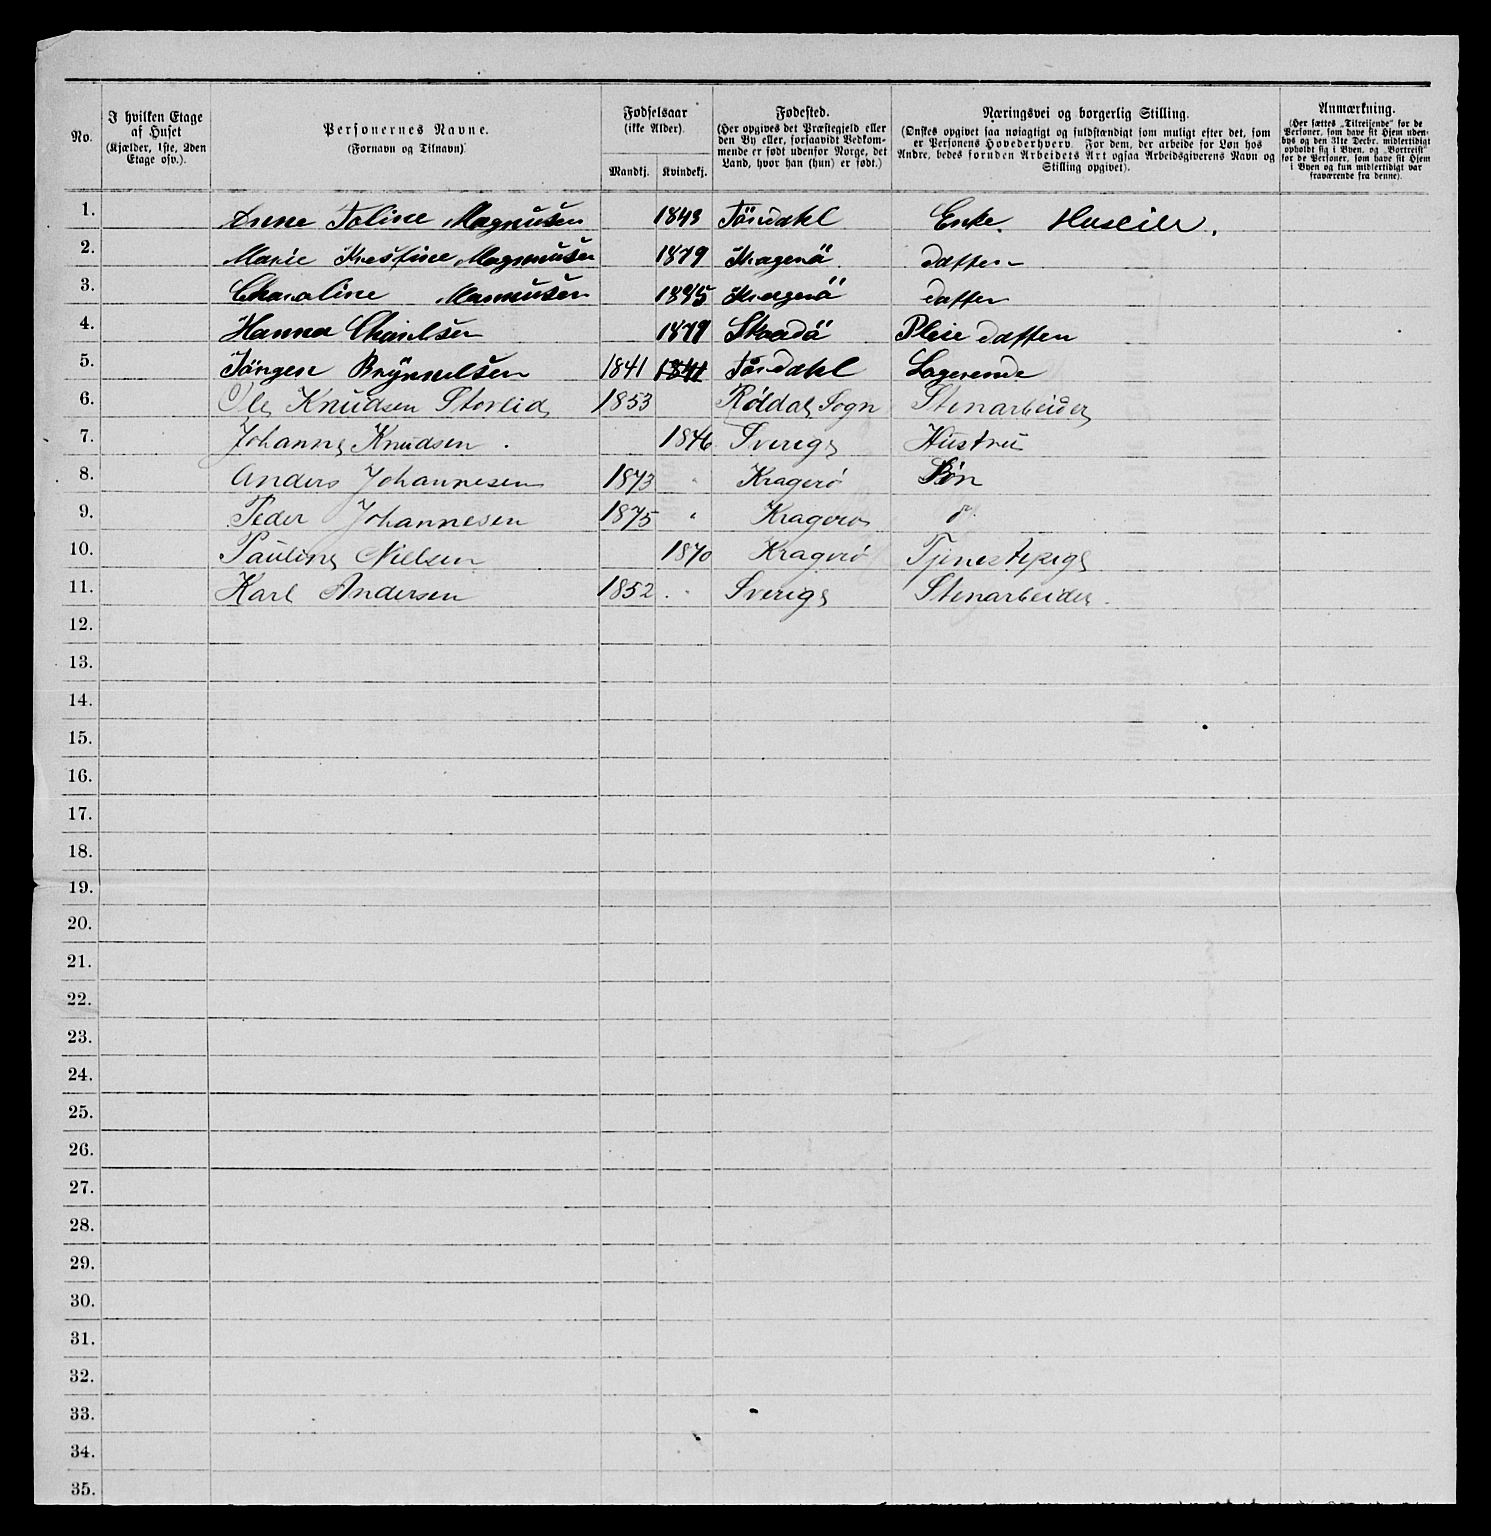 No. | I hvilken Etage af Huset (Kjælder, 1ste, 2den Etage osv.). | Personernes Navne. (Fornavn og Tilnavn). | Fødselsaar (ikke Alder). Mandkj. | Kvindekj. | Fødested. (Her opgives det Præstegjeld eller den By eller, forsaavidt Vedkommende er født udenfor Norge, det Land, hvor han (hun) er født.) | Næringsvei og borgerlig Stilling. (Ønskes opgivet saa nøiagtigt og fuldstændigt som muligt efter det, som er Personens Hovederhverv. For dem, der arbeide for Løn hos Andre, bedes foruden Arbeidets Art ogsaa Arbeidsgiverens Navn og Stilling opgivet). | Anmærkning. (Her sættes „Tilreisende“ for de Personer, som have sit Hjem udenbys og den 31te Decbr. midlertidigt opholdt sig i Byen, og „Bortreist“ for de Personer, som have sit Hjem i Byen og kun midlertidigt var fraværende fra denne).
1. Anne Toline Magnusen 1843 Törsdahl Enke. Huseier.
2. Marie Kristine Magnusen 1879 Kragerö datter
3. Charoline Magnusen 1875 Kragerö datter
4. Hanna Charlsen 1879 Skaadö Pleie datter
5. Jörgen Brynnelsen 1841 1841 Törsdahl Logerende
6. Ole Knudsen Storlid 1853 Røldal, Sogn Stenarbeider
7. Johanne Knudsen. 1846 Sverige Hustru
8. Anders Johannesen 1873 " Kragerø Søn
9. Peder Johannesen 1875 " Kragerø d°
10. Pauline Nielsen 1870 Kragerø Tjenestepige
11. Karl Andersen 1852 " Sverige Stenarbeider.
12.
13.
14.
15.
16.
17.
18.
19.
20.
21.
22.
23.
24.
25.
26.
27.
28.
29.
30.
31.
32.
33.
34.
35.